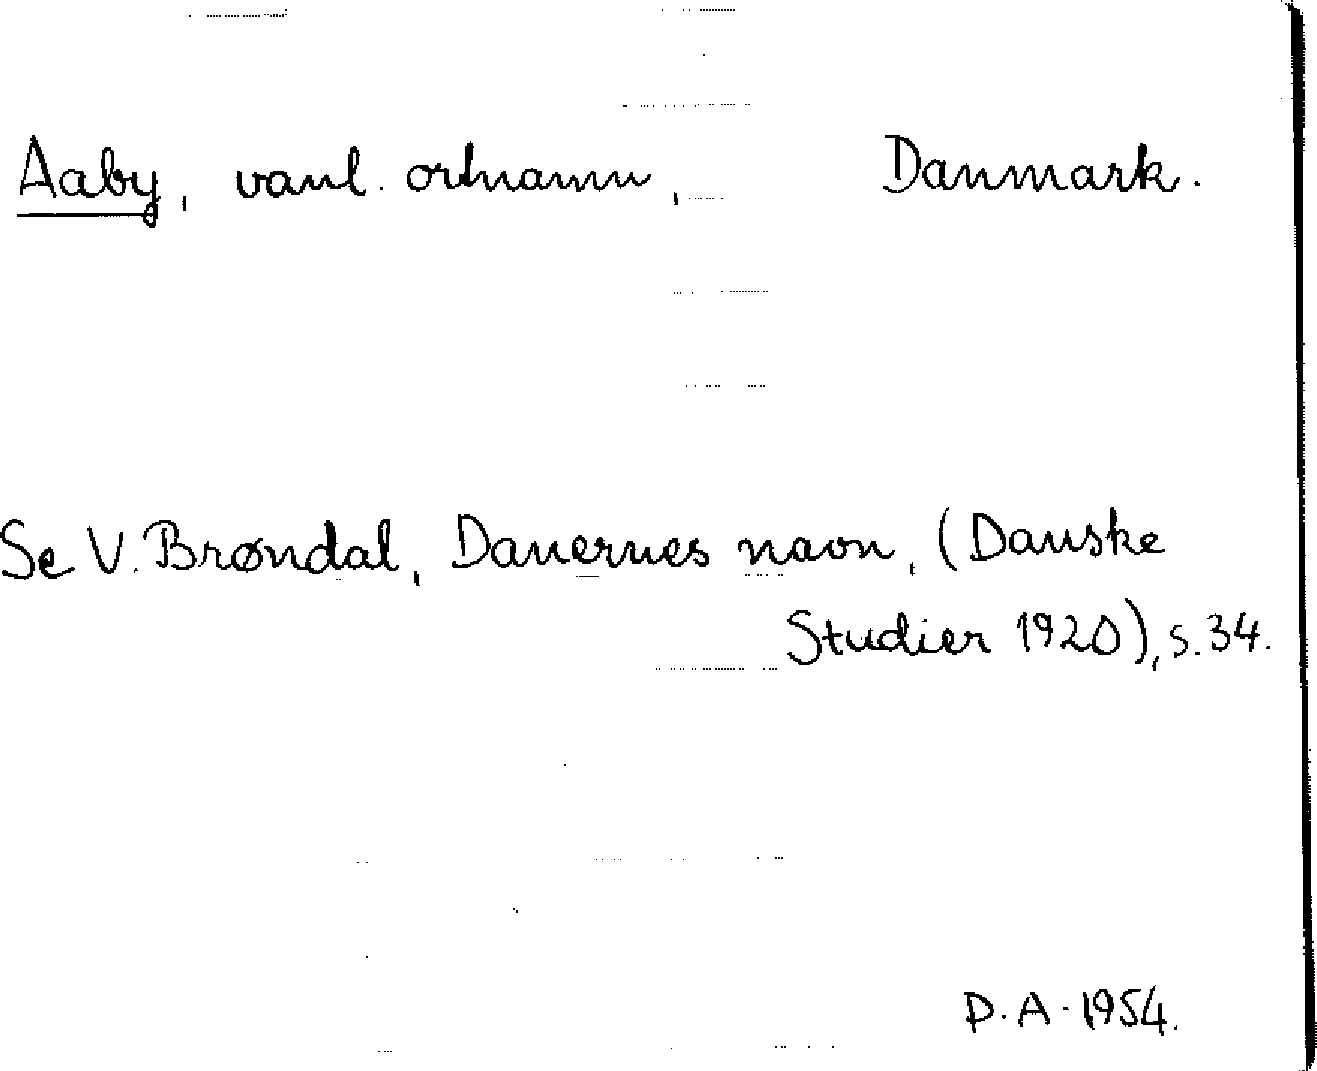 Aaby, vanl. ortnamn, Danmark.
Se V. Brøndal, Danernes navn, (Danske
Studier 1920), s. 34.
D. A. 1954.